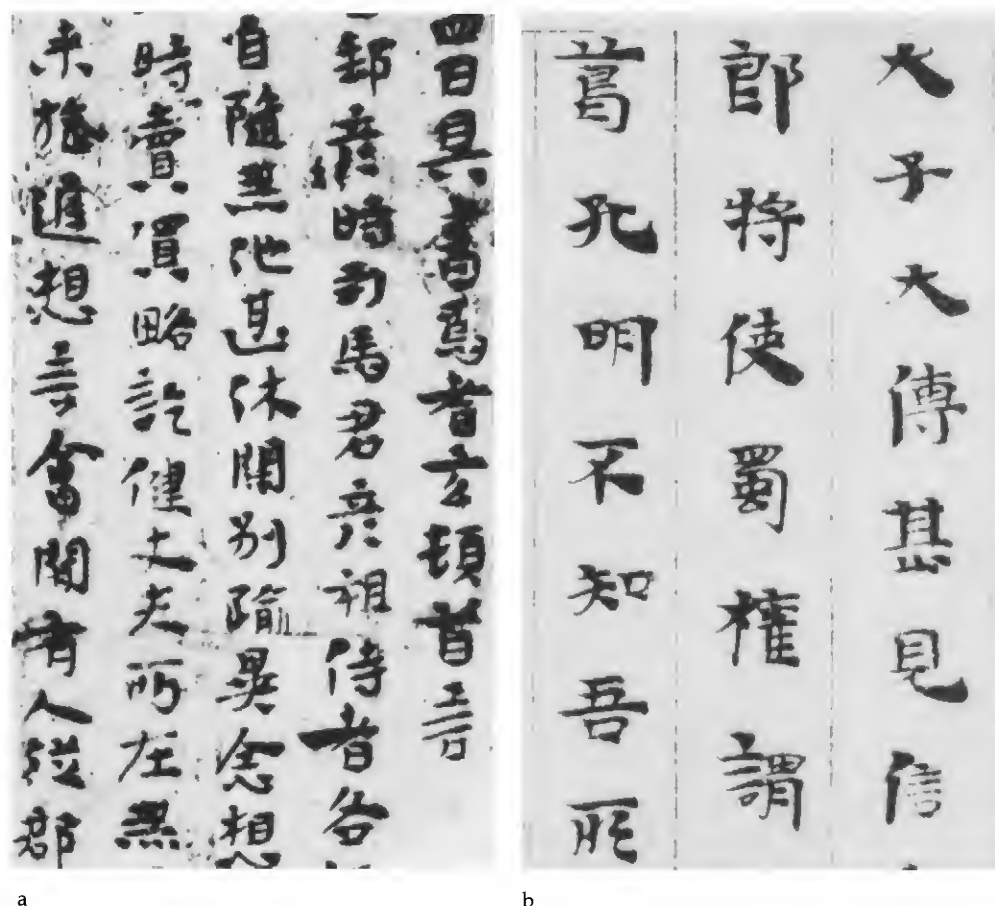 四日具書焉耆玄頓首言
郵彥時司馬君彥祖侍者各
自隨無他甚休闊別踰異念想
時賣買略訖健丈夫所在無
未旋進想言會聞有人從郡
a
太子太傅甚見信
郎將使蜀權謂
葛孔明不知吾所
b